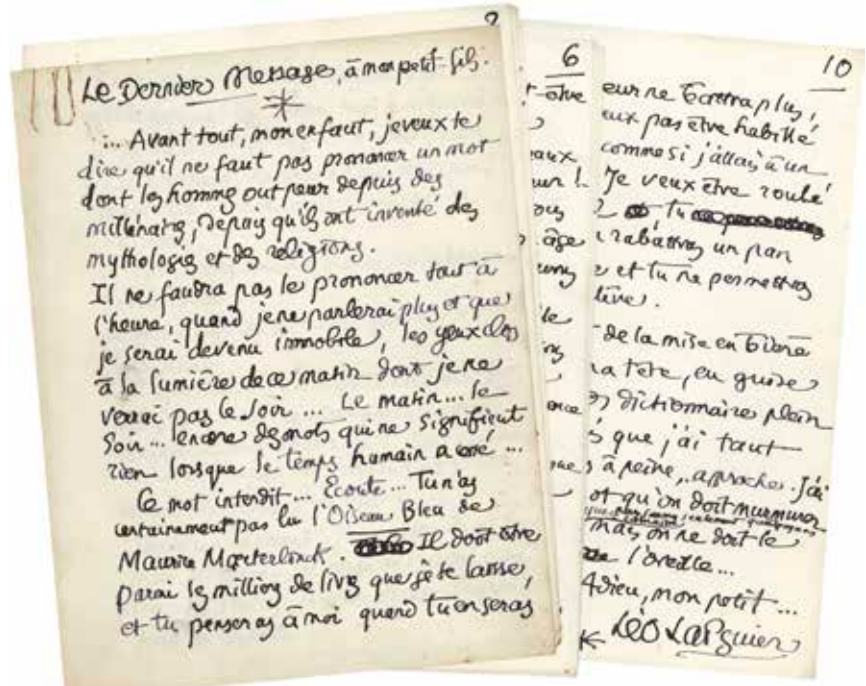 Le Dernier Message, à mon petit-fils.
... Avant tout, mon enfant, je veux te
dire qu'il ne faut pas prononcer un mot
dont les hommes ont peur depuis des
millénaires, depuis qu'ils ont inventé des
mythologies et des religions.
Il ne faudra pas le prononcer tout à
l'heure, quand je ne parlerai plus et que
je serai devenu immobile, les yeux clos
à la lumière de ce matin dont je ne
verrai pas le soir ... Le matin ... le
soir ... encore des mots qui ne signifient
rien lorsque le temps humain a cessé ...
Ce mot interdit ... Écoute ... Tu n'as
certainement pas lu l'Oiseau Bleu de
Maurice Maeterlinck. Il doit être
parmi les milliers de livres que je te laisse,
et tu penseras à moi quand tu en seras
6
t-être
eaux
ous
âge
10
eur ne battra plus,
eux pas être habillé
comme si j'allais à un
Je veux être roulé
tu
rabattras un pan
et tu ne permettras
de la mise en bière
ma tête, en guise
dictionnaire plein
que j'ai tant
à peine, approche. J'ai
ot qu'on doit murmurer
mais on ne doit le
l'oreille ...
Adieu, mon petit ...
Léo Larguier